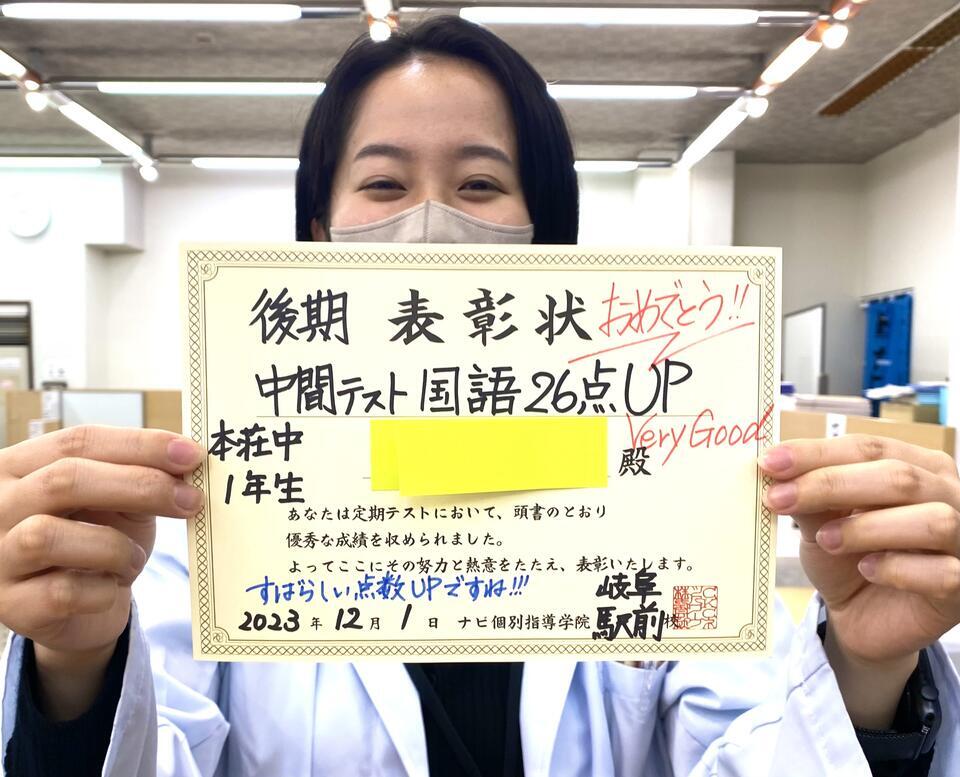 後期 表彰状 おめでとう!!
中間テスト 国語 26点UP
Very Good
本荘中
1年生
殿
あなたは定期テストにおいて、頭書のとおり
優秀な成績を収められました。
よってここにその努力と熱意をたたえ、表彰いたします。
すばらしい点数UPですね!!!
2023年12月1日 ナビ個別指導学院 岐阜駅前校